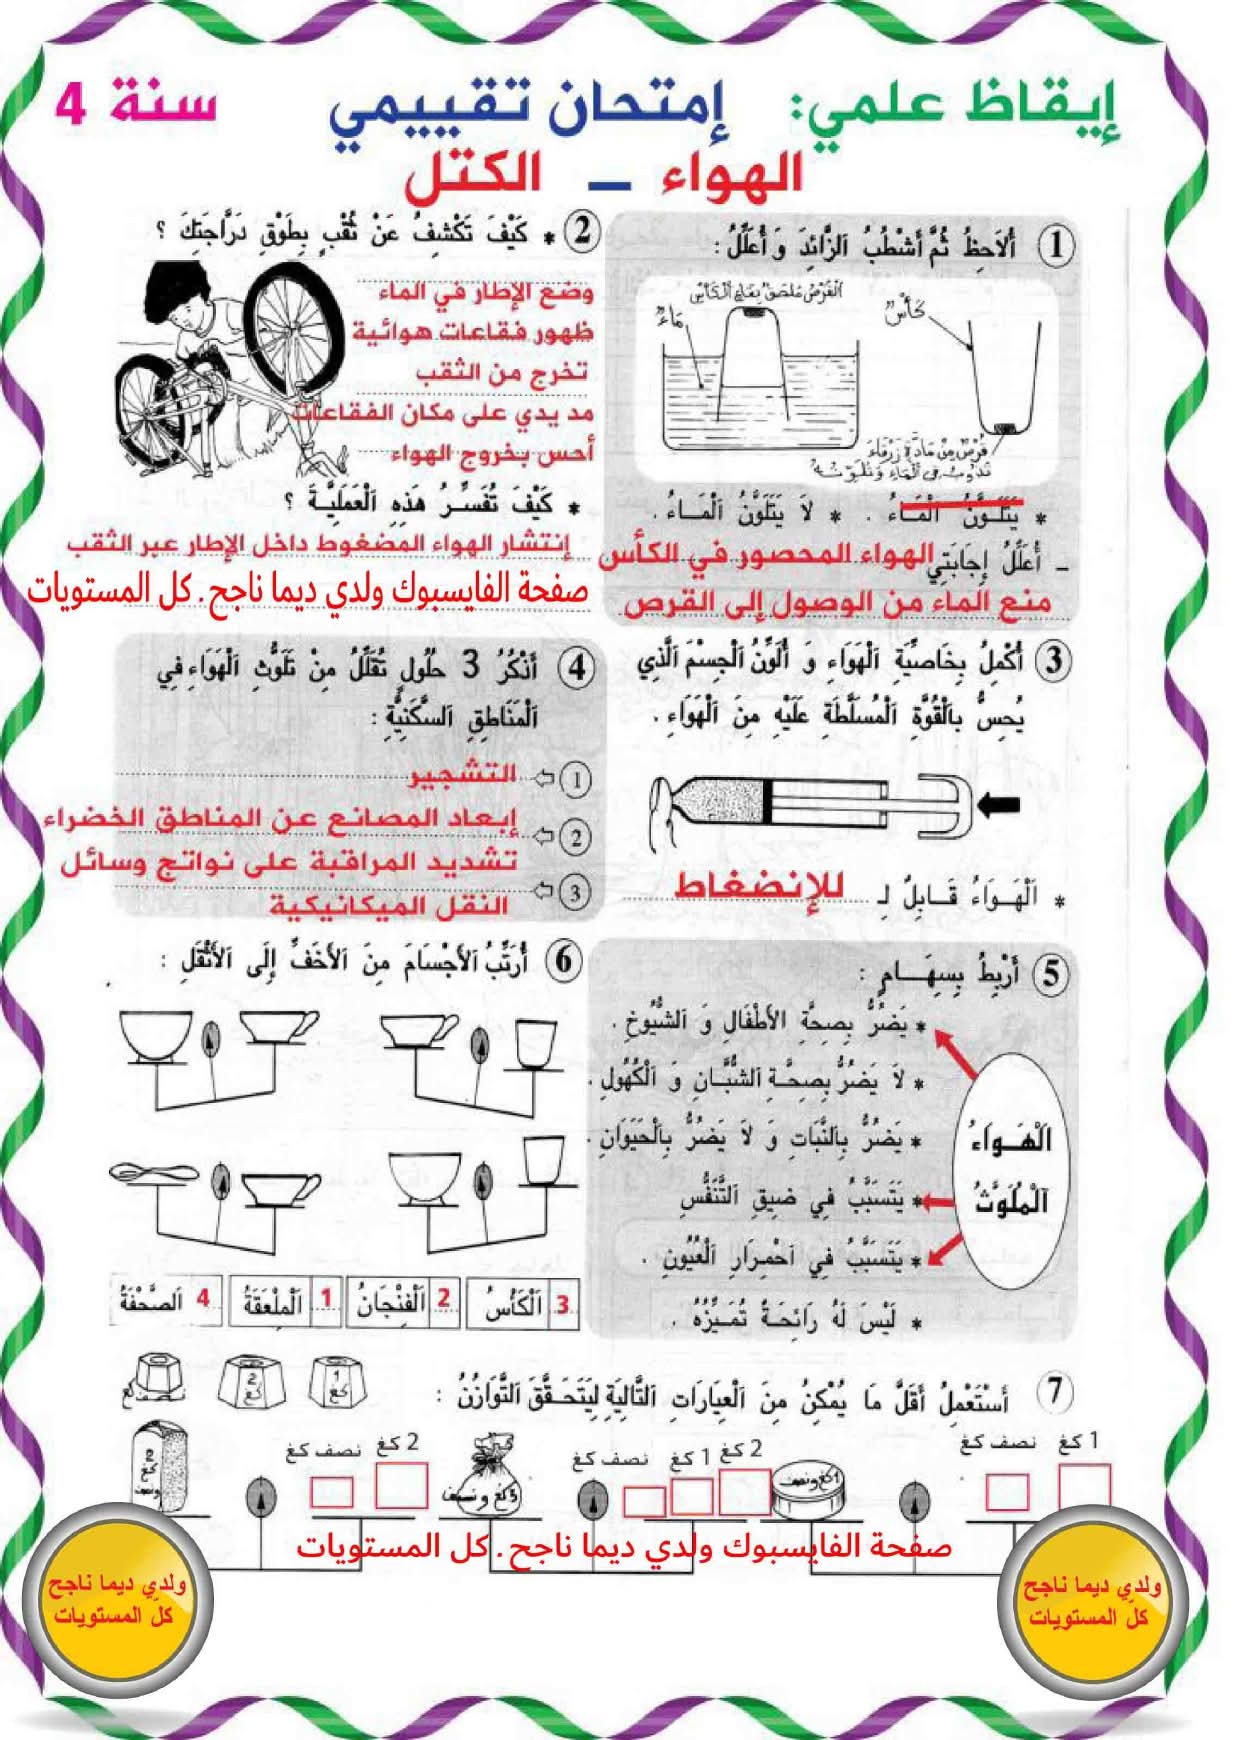 إيقاظ علمي: إمتحان تقييمي سنة 4
الهواء – الكتل
1 أُلَاحِظُ ثُمَّ أَشْطُبُ الزَّائِدَ وَ أُعَلِّلُ :
كَأْسٌ
مَاءٌ
قُرْصٌ مِنْ مَادَّةٍ زَرْقَاءَ
تَذُوبُ فِي الْمَاءِ وَتُلَوِّنُهُ
* يَتَلَوَّنُ الْمَاءُ . * لَا يَتَلَوَّنُ الْمَاءُ .
– أُعَلِّلُ إِجَابَتِي الهواء المحصور في الكأس
منع الماء من الوصول إلى القرص
2 * كَيْفَ تَكْشِفُ عَنْ ثُقْبٍ بِطَوْقِ دَرَّاجَتِكَ ؟
وضع الإطار في الماء
ظهور فقاعات هوائية
تخرج من الثقب
مد يدي على مكان الفقاعات
أحس بخروج الهواء
* كَيْفَ تُفَسِّرُ هَذِهِ الْعَمَلِيَّةَ ؟
إنتشار الهواء المضغوط داخل الإطار عبر الثقب
صفحة الفايسبوك ولدي ديما ناجح. كل المستويات
3 أُكْمِلُ بِخَاصِيَّةِ الْهَوَاءِ وَ أُلَوِّنُ الْجِسْمَ الَّذِي
يُحِسُّ بِالْقُوَّةِ الْمُسَلَّطَةِ عَلَيْهِ مِنَ الْهَوَاءِ .
* الْهَوَاءُ قَابِلٌ لِـ للإنضغاط
4 أَذْكُرُ 3 حُلُولٍ تُقَلِّلُ مِنْ تَلَوُّثِ الْهَوَاءِ فِي
الْمَنَاطِقِ السَّكَنِيَّةِ :
1 التشجير
2 إبعاد المصانع عن المناطق الخضراء
تشديد المراقبة على نواتج وسائل
3 النقل الميكانيكية
5 أَرْبِطُ بِسِهَامٍ :
الْهَوَاءُ
الْمُلَوَّثُ
* يَضُرُّ بِصِحَّةِ الأَطْفَالِ وَ الشُّيُوخِ .
* لَا يَضُرُّ بِصِحَّةِ الشُّبَّانِ وَ الْكُهُولِ .
* يَضُرُّ بِالنَّبَاتِ وَ لَا يَضُرُّ بِالْحَيَوَانِ .
* يَتَسَبَّبُ فِي ضِيقِ التَّنَفُّسِ
* يَتَسَبَّبُ فِي احْمِرَارِ الْعُيُونِ .
* لَيْسَ لَهُ رَائِحَةٌ تُمَيِّزُهُ .
6 أُرَتِّبُ الأَجْسَامَ مِنَ الأَخَفِّ إِلَى الأَثْقَلِ :
3 الْكَأْسُ 2 الْفِنْجَانُ 1 الْمِلْعَقَةُ 4 الصَّحْفَةُ
7 أَسْتَعْمِلُ أَقَلَّ مَا يُمْكِنُ مِنَ الْعِيَارَاتِ التَّالِيَةِ لِيَتَحَقَّقَ التَّوَازُنُ :
1 كغ
2 كغ
نصف كغ
1 كغ نصف كغ
1 كغ ونصف
2 كغ 1 كغ نصف كغ
3 كغ ونصف
2 كغ نصف كغ
2 كغ ونصف
صفحة الفايسبوك ولدي ديما ناجح. كل المستويات
ولدي ديما ناجح
كلّ المستويات
ولدي ديما ناجح
كلّ المستويات